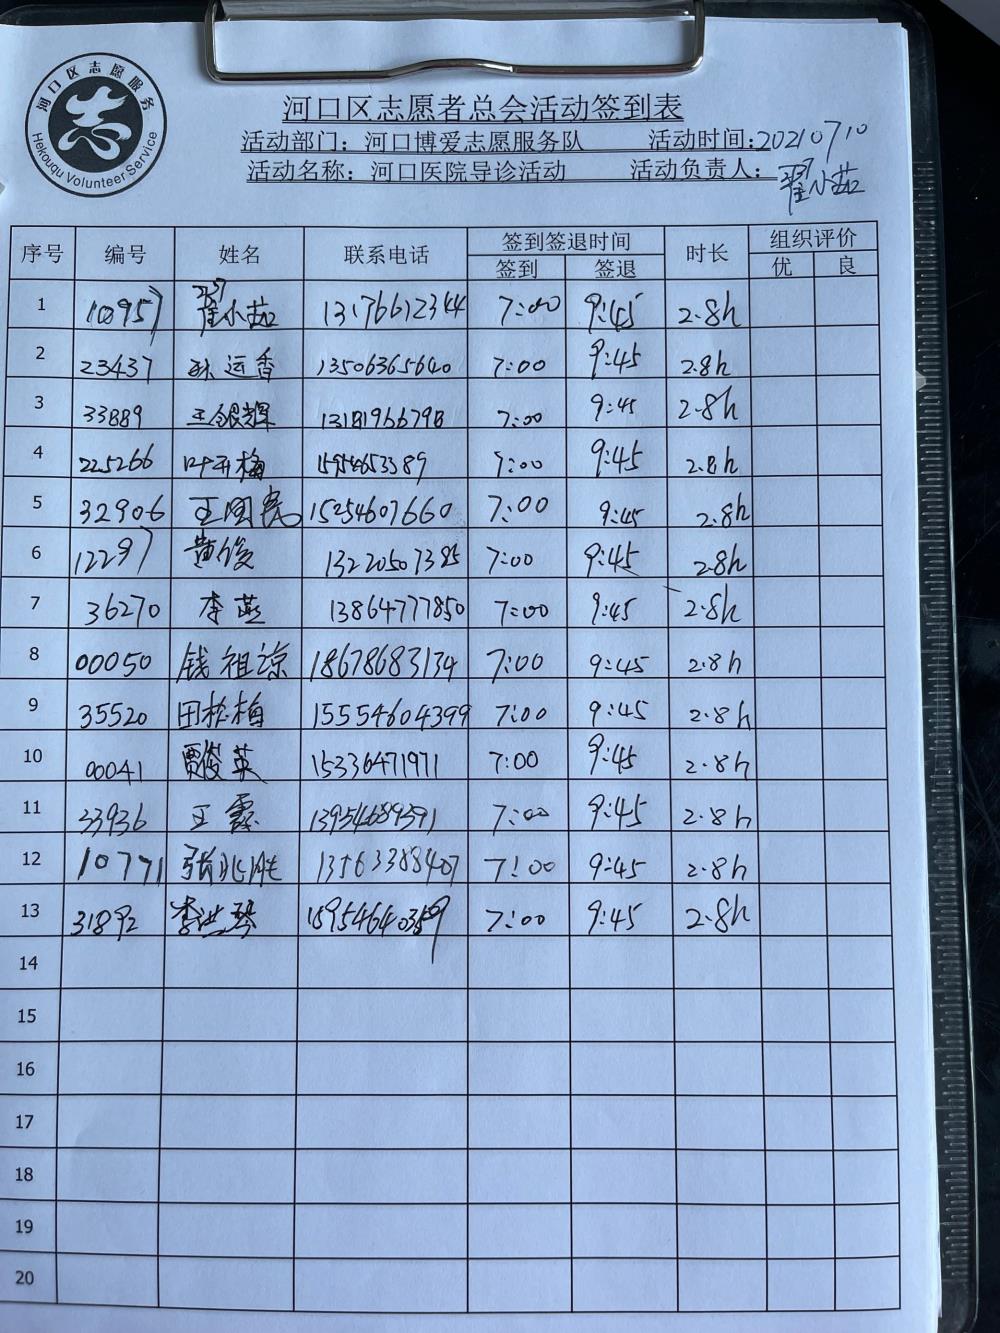 河口区志愿服务
Hekouqu Volunteer Service
河口区志愿者总会活动签到表
活动部门：河口博爱志愿服务队 活动时间：20210710
活动名称：河口医院导诊活动 活动负责人：翟小茹
序号 编号 姓名 联系电话 签到签退时间 时长 组织评价
签到 签退 优 良
1 10957 翟小茹 13176612344 7:00 9:45 2.8h
2 23437 孙运香 13506365640 7:00 9:45 2.8h
3 33889 王银辉 13181966798 7:00 9:45 2.8h
4 225266 叶开梅 15954653389 7:00 9:45 2.8h
5 32906 王国亮 15254607660 7:00 9:45 2.8h
6 12297 黄俊 13220507385 7:00 9:45 2.8h
7 36270 李燕 13864777850 7:00 9:45 2.8h
8 00050 钱祖谅 18678683134 7:00 9:45 2.8h
9 35520 田松梅 15554604399 7:00 9:45 2.8h
10 00041 贾俊英 15336471971 7:00 9:45 2.8h
11 33936 王霞 13954689591 7:00 9:45 2.8h
12 10771 张兆胜 13563388407 7:00 9:45 2.8h
13 31892 李洪琴 7:00 9:45 2.8h
14
15
16
17
18
19
20